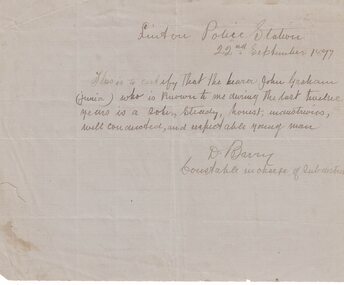 Linton Police Station
22nd September 1897
This is to certify that the bearer John Graham
(junior) who is known to me during the last twelve
years is a sober, steady, honest, industrious,
well conducted, and respectable young man
D. Barry
Constable in charge of Subdistrict